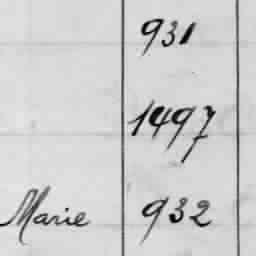 931
1497
Marie 932